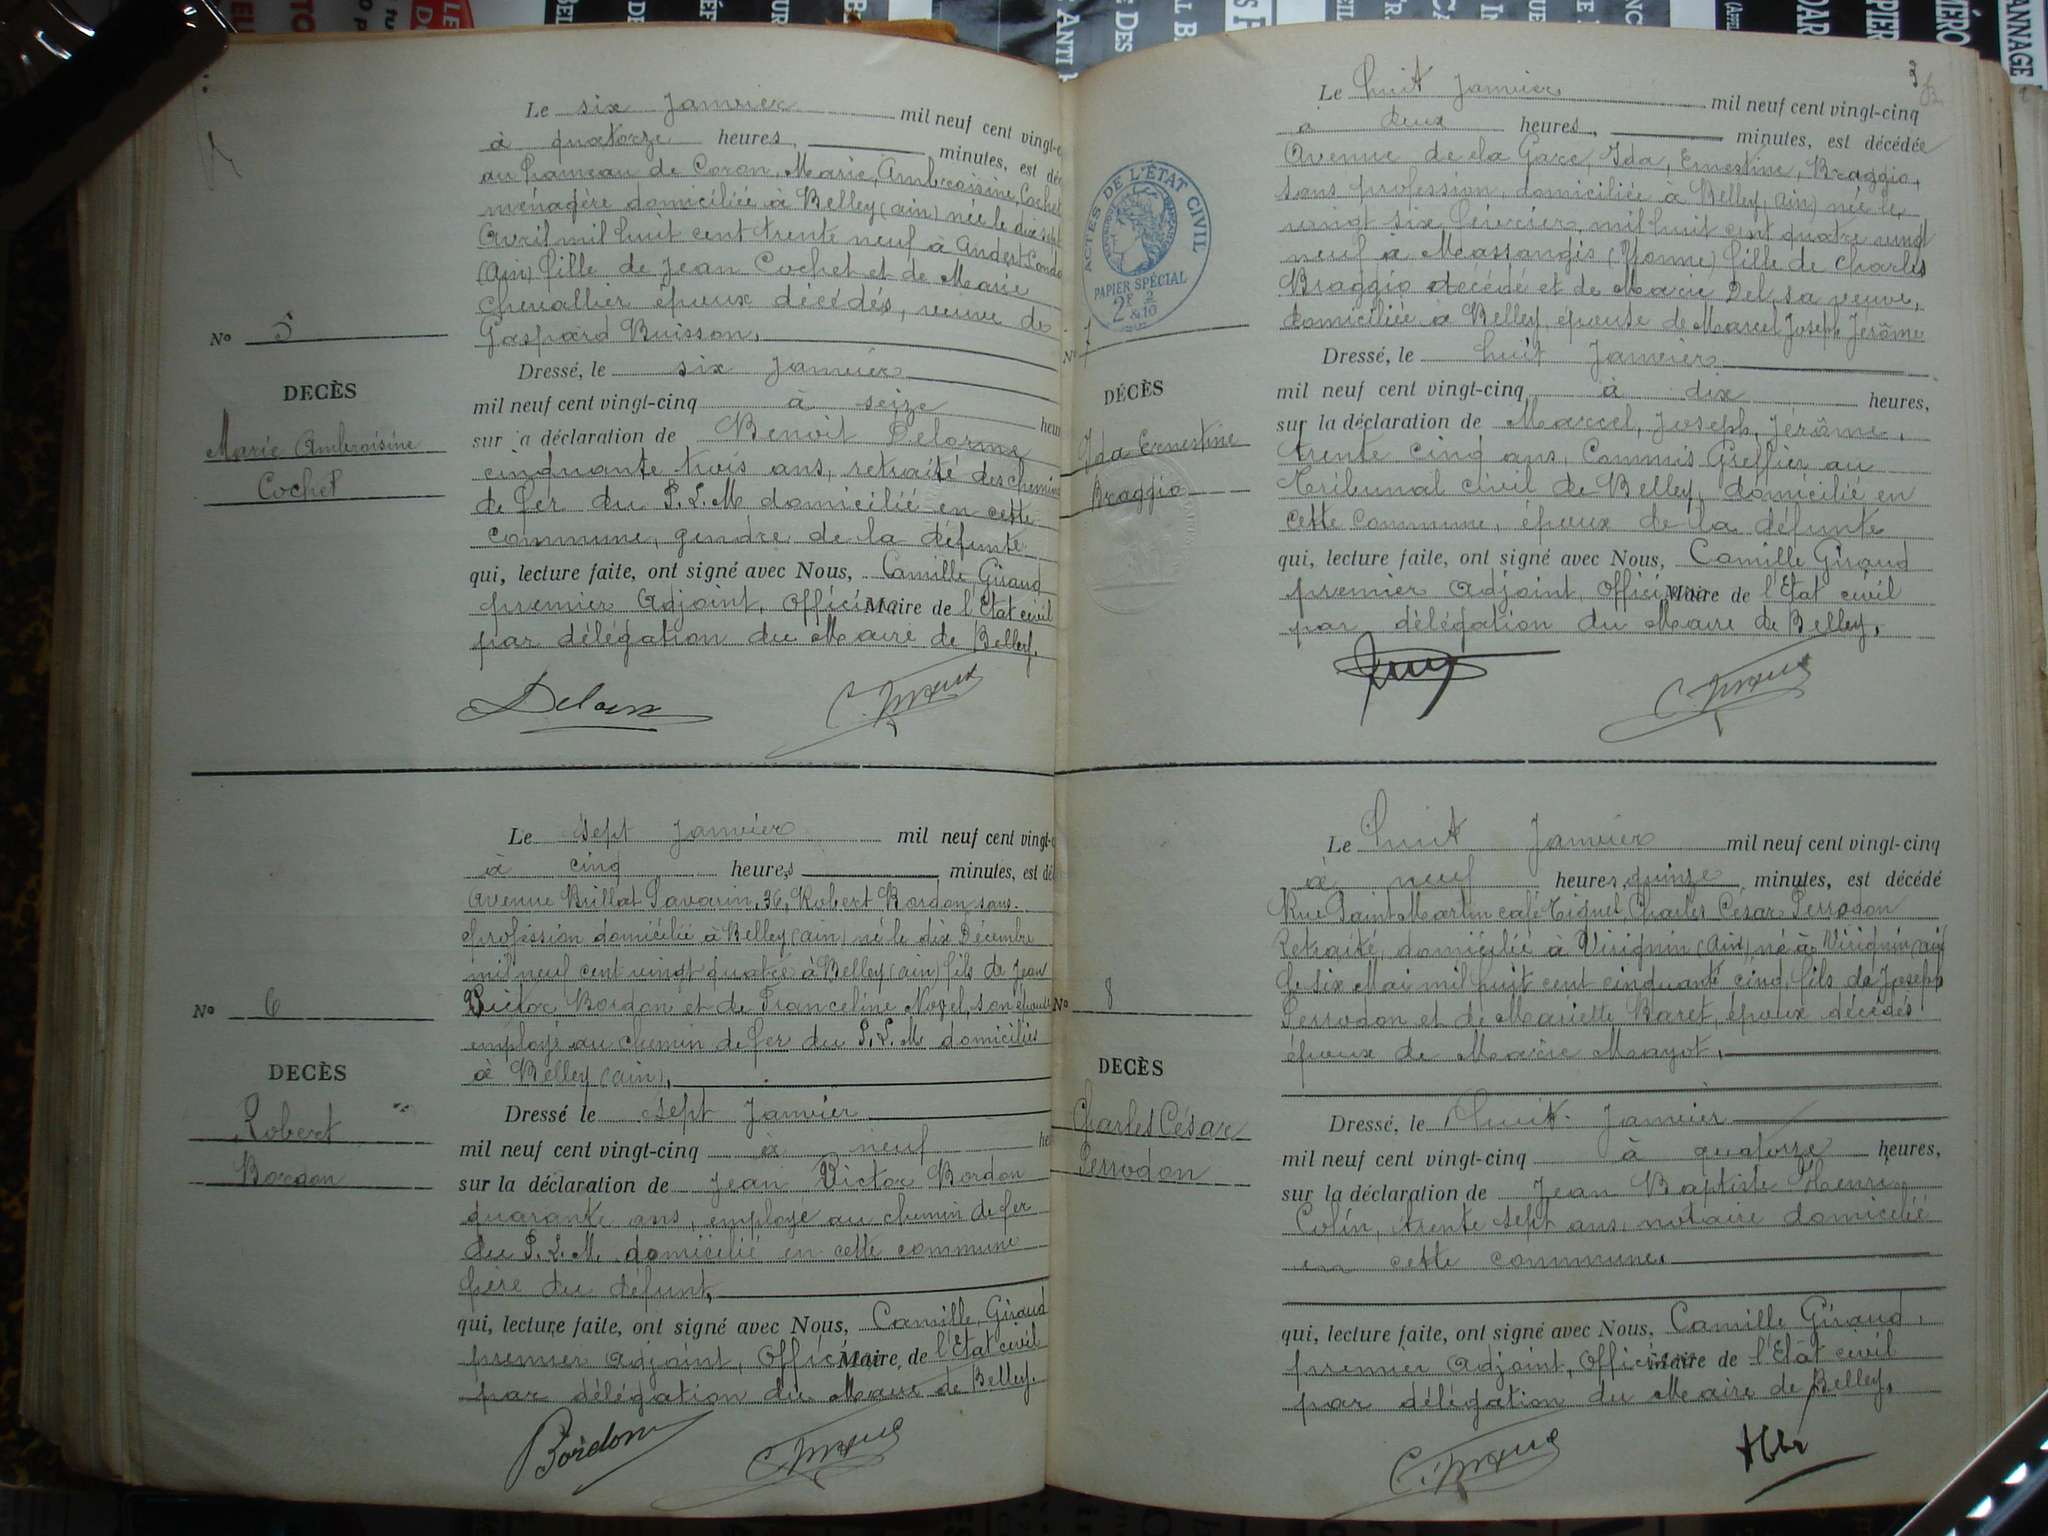 Le six Janvier mil neuf cent vingt-c
à quatorze heures, minutes, est déc
au hameau de Coron, Marie, Ambroisine, Cochet
ménagère domiciliée à Belley (ain) née le dix sept
Avril mil huit cent trente neuf à Andert-Condo
(Ain) fille de Jean Cochet et de Marie
Chevallier époux décédés, veuve de
Gaspard Buisson.
No 5
Dressé, le six Janvier
DECÈS
mil neuf cent vingt-cinq à seize heu
Marie Ambroisine
Cochet
sur a déclaration de Benoit Delorme
cinquante trois ans, retraité des chemins
de fer du P.L.M domicilié en cette
commune, gendre de la défunte
qui, lecture faite, ont signé avec Nous, Camille Giraud
premier Adjoint, Officier Maire de l'Etat civil
par délégation du Maire de Belley.
Le sept Janvier mil neuf cent vingt-c
à cinq heures minutes, est dé
Avenue Brillat Savarin, 36, Robert Bordon sans
profession domicilié à Belley (ain) né le dix Décembre
mil neuf cent vingt quatre à Belley (ain) fils de Jean
Victor Bordon et de Franceline Nozel, son épouse
No 6
employé au chemin de fer du P.L.M domiciliés
à Belley (ain).
DECÈS
Robert
Bordon
Dressé le sept Janvier
mil neuf cent vingt-cinq à neuf he
sur la déclaration de Jean Victor Bordon
quarante ans, employé au chemin de fer
du P.L.M. domicilié en cette commune
père du défunt,
qui, lecture faite, ont signé avec Nous, Camille Giraud
premier Adjoint, Officier Maire, de l'Etat civil
par délégation du Maire de Belley.
Bordon
Le huit Janvier mil neuf cent vingt-cinq
à deux heures, minutes, est décédée
Avenue de la Gare, Ida, Ernestine, Braggio,
sans profession, domiciliée à Belley (ain) née le
vingt six février mil huit cent quatre vingt
neuf à Massangis (Yonne) fille de Charles
Braggio décédé et de Marie Del, sa veuve,
domiciliée à Belley, épouse de Marcel Joseph Jérôme
ACTES DE L'ÉTAT CIVIL
PAPIER SPÉCIAL
2F 2/10
No 7
Dressé, le huit Janvier
DÉCÈS
Ida Ernestine
Braggio
mil neuf cent vingt-cinq à dix heures,
sur la déclaration de Marcel, Joseph, Jérôme,
trente cinq ans, Commis Greffier au
Tribunal civil de Belley, domicilié en
cette commune, époux de la défunte
qui, lecture faite, ont signé avec Nous, Camille Giraud
premier Adjoint, Officier Maire de l'Etat civil
par délégation du Maire de Belley.
Le huit Janvier mil neuf cent vingt-cinq
à neuf heures, quinze minutes, est décédé
Rue Saint Martin café Tignel, Charles César Perrodon
Retraité, domicilié à Virignin (Ain), né à Virignin (ain)
le six Mai mil huit cent cinquante cinq, fils de Joseph
Perrodon et de Mariette Baret, époux décédés
époux de Marie Mayot.
No 8
DECÈS
Charles César
Perrodon
Dressé, le huit Janvier
mil neuf cent vingt-cinq à quatorze heures,
sur la déclaration de Jean Baptiste Henri
Colin, trente sept ans, notaire domicilié
en cette commune.
qui, lecture faite, ont signé avec Nous, Camille Giraud,
premier Adjoint, Officier Maire de l'Etat civil
par délégation du Maire de Belley.